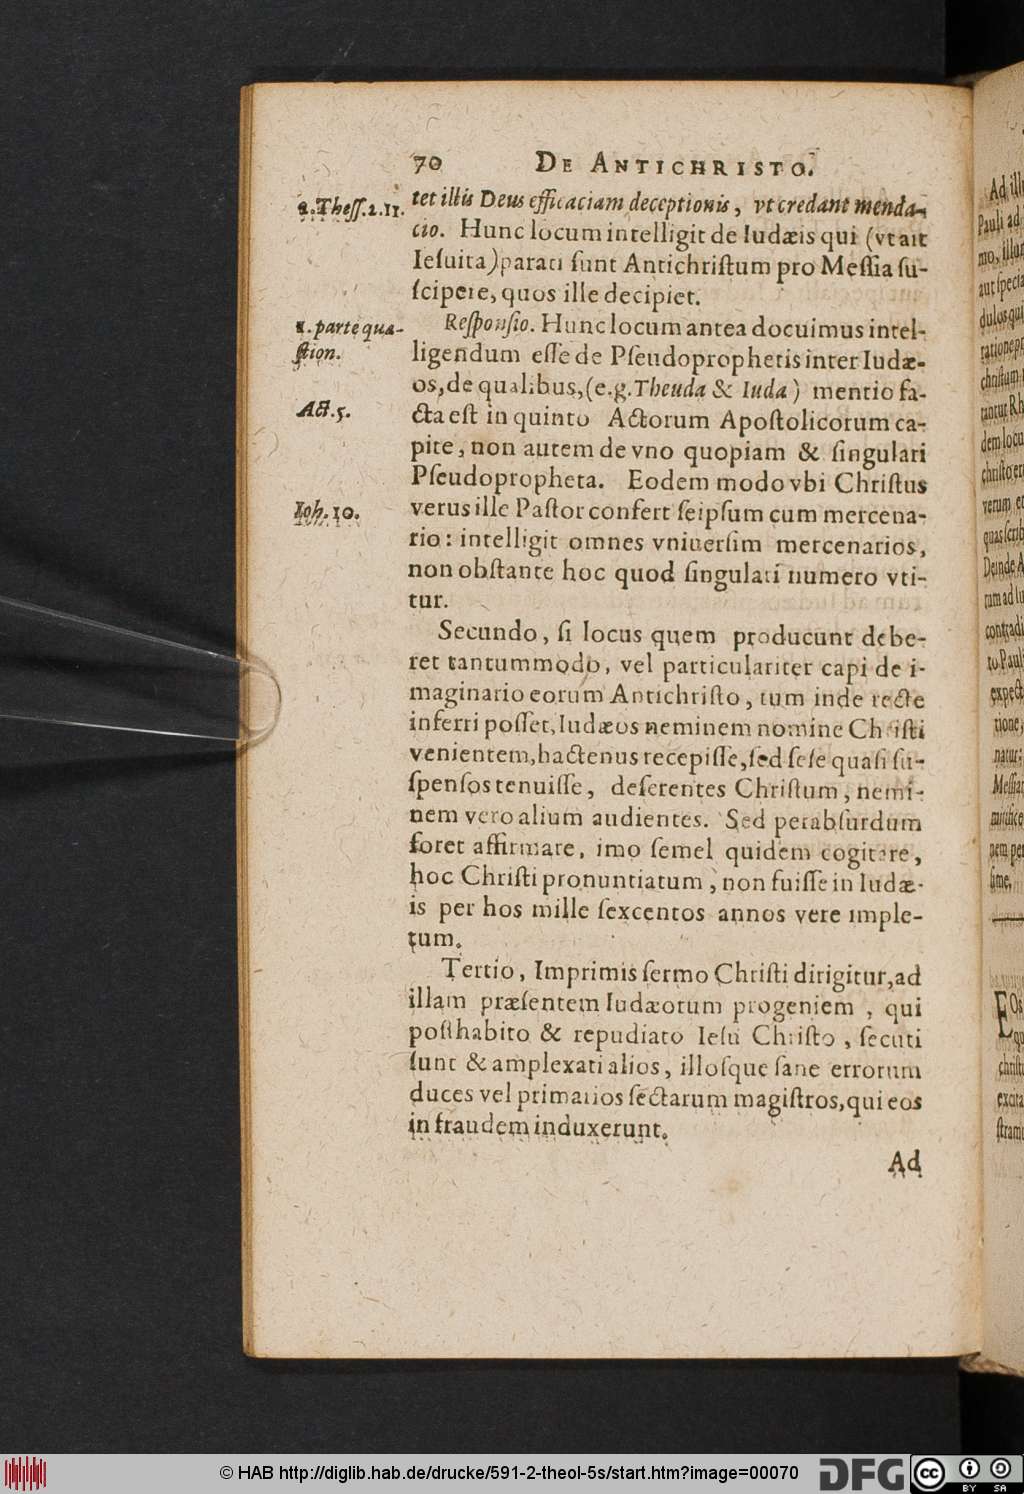 70 DE ANTICHRISTO.
2.Theſſ.2.11.
tet illis Deus efficaciam deceptionis, vt credant menda-
cio. Hunc locum intelligit de Iudæis qui (vt ait
Ieſuita) parati ſunt Antichriſtum pro Meſſia ſu-
ſcipere, quos ille decipiet.
1. parte quæ-
ſtion.
Reſponſio. Hunc locum antea docuimus intel-
ligendum eſſe de Pſeudoprophetis inter Iudæ-
os, de qualibus, (e.g. Theuda & Iuda) mentio fa-
Act.5.
cta eſt in quinto Actorum Apoſtolicorum ca-
pite, non autem de vno quopiam & ſingulari
Pſeudopropheta. Eodem modo vbi Chriſtus
Ioh.10.
verus ille Paſtor confert ſeipſum cum mercena-
rio: intelligit omnes vniuerſim mercenarios,
non obſtante hoc quod ſingulari numero vti-
tur.
Secundo, ſi locus quem producunt debe-
ret tantummodo, vel particulariter capi de i-
maginario eorum Antichriſto, tum inde recte
inferri poſſet, Iudæos neminem nomine Chriſti
venientem, hactenus recepiſſe, ſed ſeſe quaſi ſu-
ſpenſos tenuiſſe, deſerentes Chriſtum, nemi-
nem vero alium audientes. Sed perabſurdum
foret affirmare, imo ſemel quidem cogitare,
hoc Chriſti pronuntiatum, non fuiſſe in Iudæ-
is per hos mille ſexcentos annos vere imple-
tum.
Tertio, Imprimis ſermo Chriſti dirigitur, ad
illam præſentem Iudæorum progeniem, qui
poſthabito & repudiato Ieſu Chriſto, ſecuti
ſunt & amplexati alios, illoſque ſane errorum
duces vel primarios ſectarum magiſtros, qui eos
in fraudem induxerunt.
Ad
© HAB http://diglib.hab.de/drucke/591-2-theol-5s/start.htm?image=00070
DFG
cc
BY SA